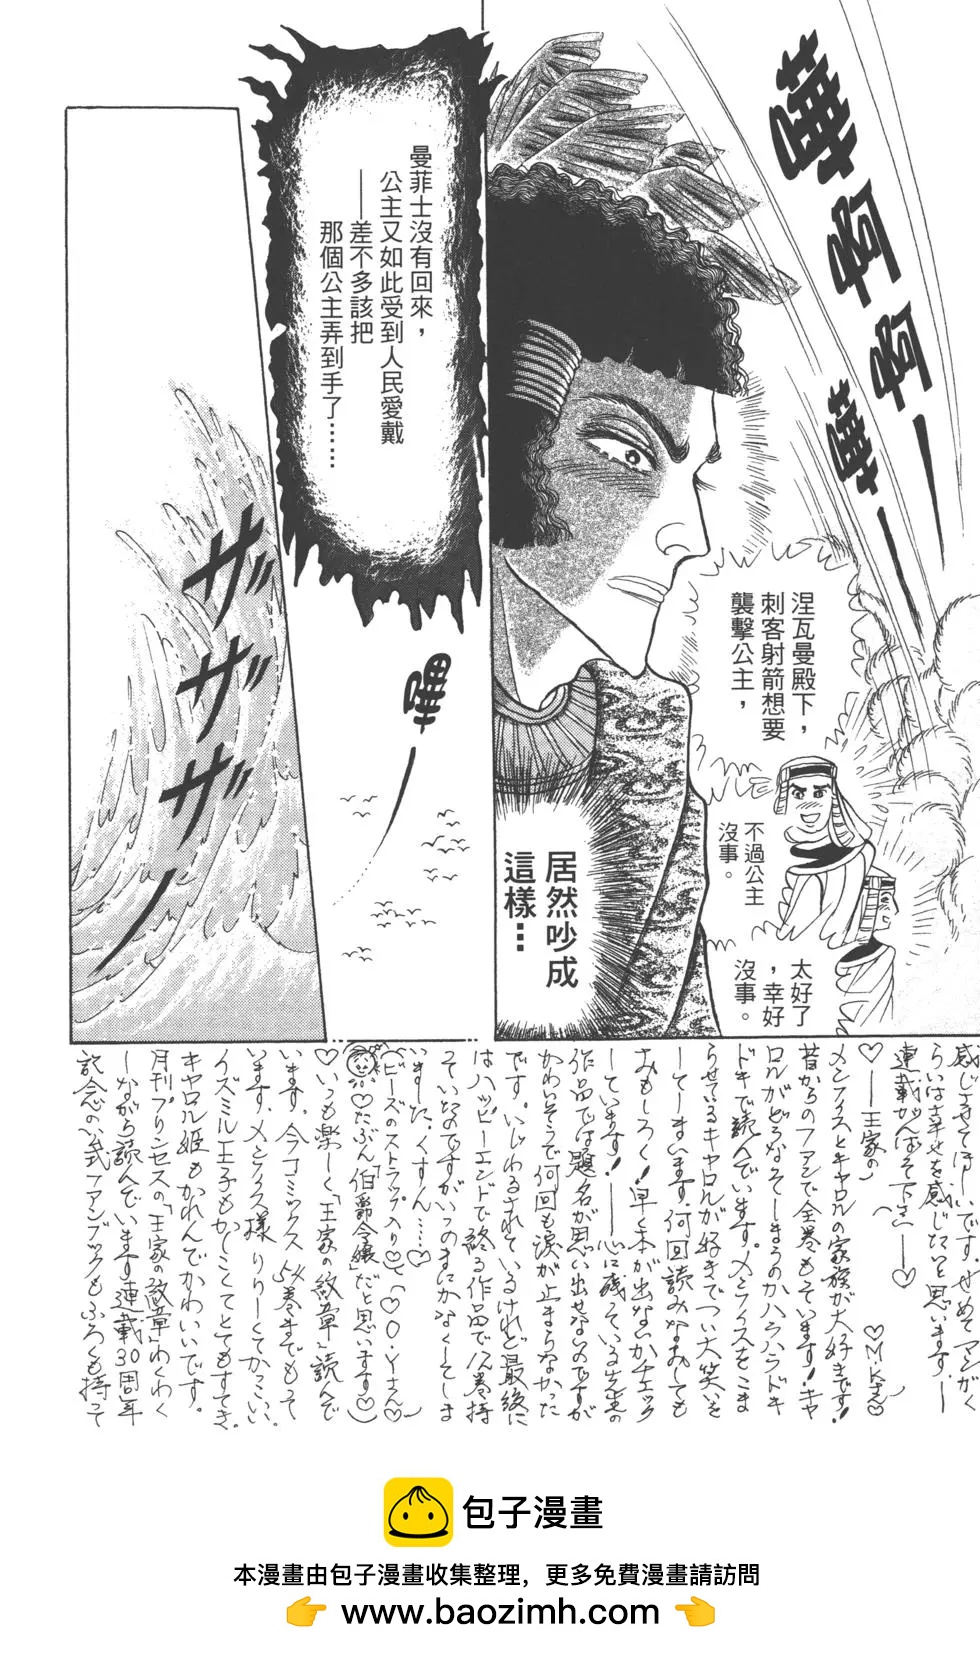 嘩
呀
呀
嘩
涅瓦曼殿下，
刺客射箭想要
襲擊公主，
不過公主
沒事。
太好了
，幸好
沒事。
居然吵成
這樣…
曼菲士沒有回來，
公主又如此受到人民愛戴
——差不多該把
那個公主弄到手了……
嗶
ザ
ザ
ザ
感じさせてほしいです。せめてマンガく
らいは幸せを感じたいと思います。—
連載がんばって下さい——♡
♡——王家の
メンフィスとキャロルの家族が大好きです!
昔からのファンで全巻もっています!キャ
ロルがどうなってしまうのかハラハラドキ
ドキで読んでいます。メンフィスをこま
らせているキャロルが好きでつい大笑いを
してしまいます。何回読みなおしても
おもしろく!早く本が出ないかチェック
しています!——心に残っている先生の
作品では題名が思い出せないのですが
かわいそうで何回も涙が止まらなかった
です。いじわるされているけれど最後に
はハッピーエンドで終る作品で12巻持
っていたのですがいつのまにかなくしてしま
いました。くすん……♡
(ビーズのストラップ入り♡)(♡O・Yさん♡
♡たぶん「伯爵令嬢」だと思います♡)
♡いつも楽しく「王家の紋章」読んで
います。今コミックス54巻までもって
います。メンフィス様りりしくてかっこいい
イズミル王子もかしこくてとてもすてき
キャロル姫もかれんでかわいいです。
月刊プリンセスの「王家の紋章」わくわく
しながら読んでいます連載30周年
記念の公式ファンブックもふろくも持って
包子漫畫
本漫畫由包子漫畫收集整理，更多免費漫畫請訪問
👉 www.baozimh.com 👈